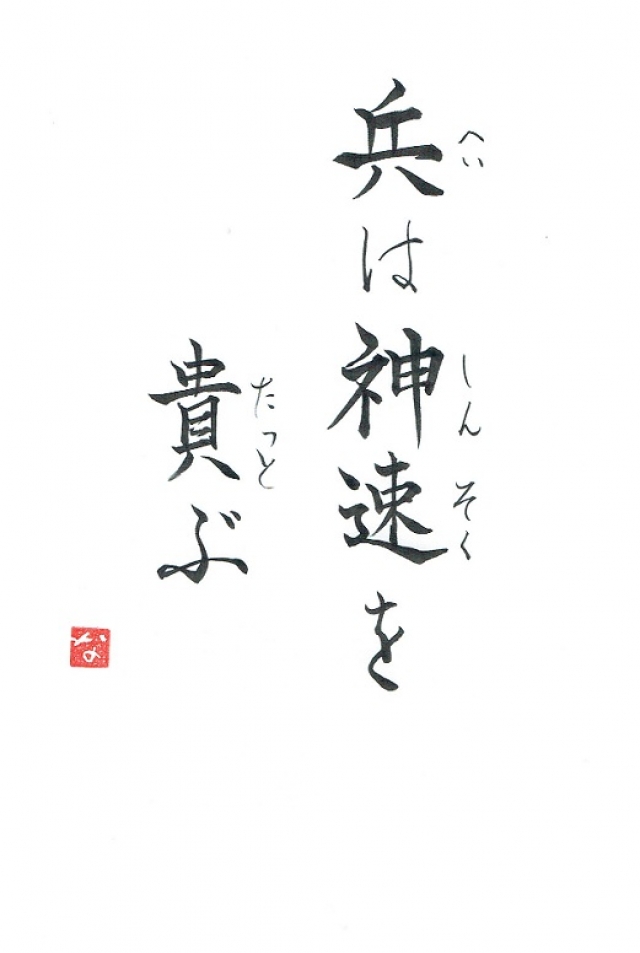 兵は神速を
へい
しんそく
貴ぶ
たっと
な